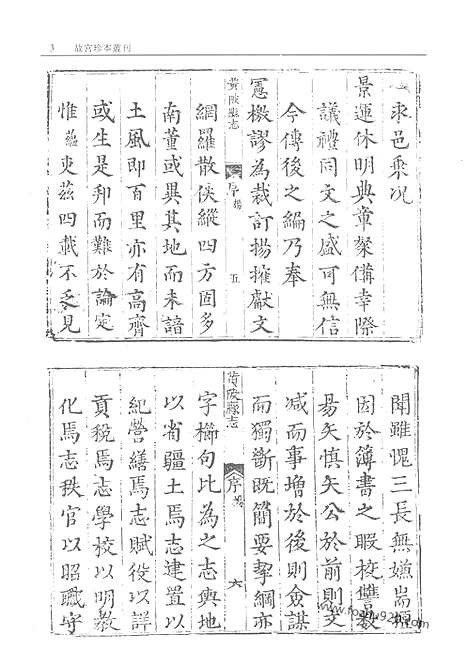 3 故宮珍本叢刊
求邑乘况
景運休明典章粲備幸際
議禮同文之盛可無信
今傳後之編乃奉
憲檄謬為裁訂揚搉獻文
黃陂縣志 序 楊 五
網羅散佚縱四方固多
南董或異其地而未諳
土風即百里亦有高齊
或生是邦而難於論定
惟 吏茲四載不乏見
聞雖愧三長無嫌耑
因於簿書之暇校讐數
易矣慎矣公於前則文
減而事增於後則僉謀
而獨斷旣簡要挈綱亦
黃陂縣志 序 楊 六
字櫛句比為之志輿地
以省疆土焉志建置以
紀營繕焉志賦役以詳
貢稅焉志學校以明教
化焉志秩官以昭職守